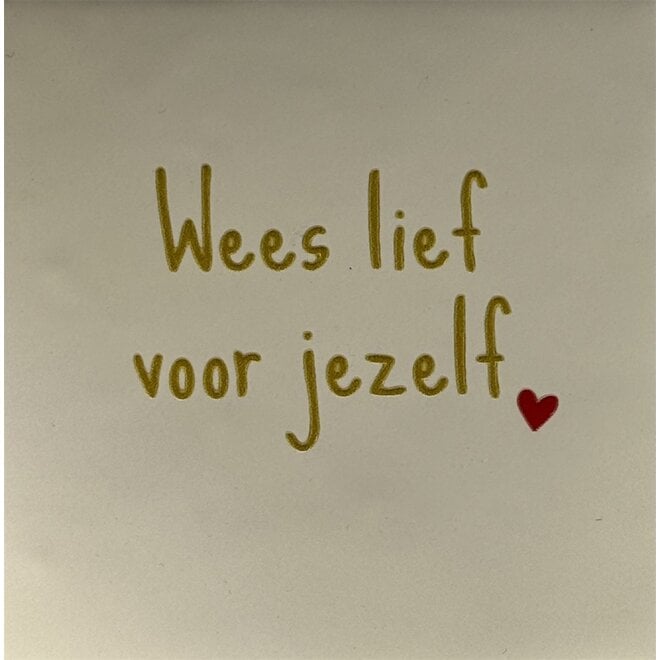 Wees lief
voor jezelf